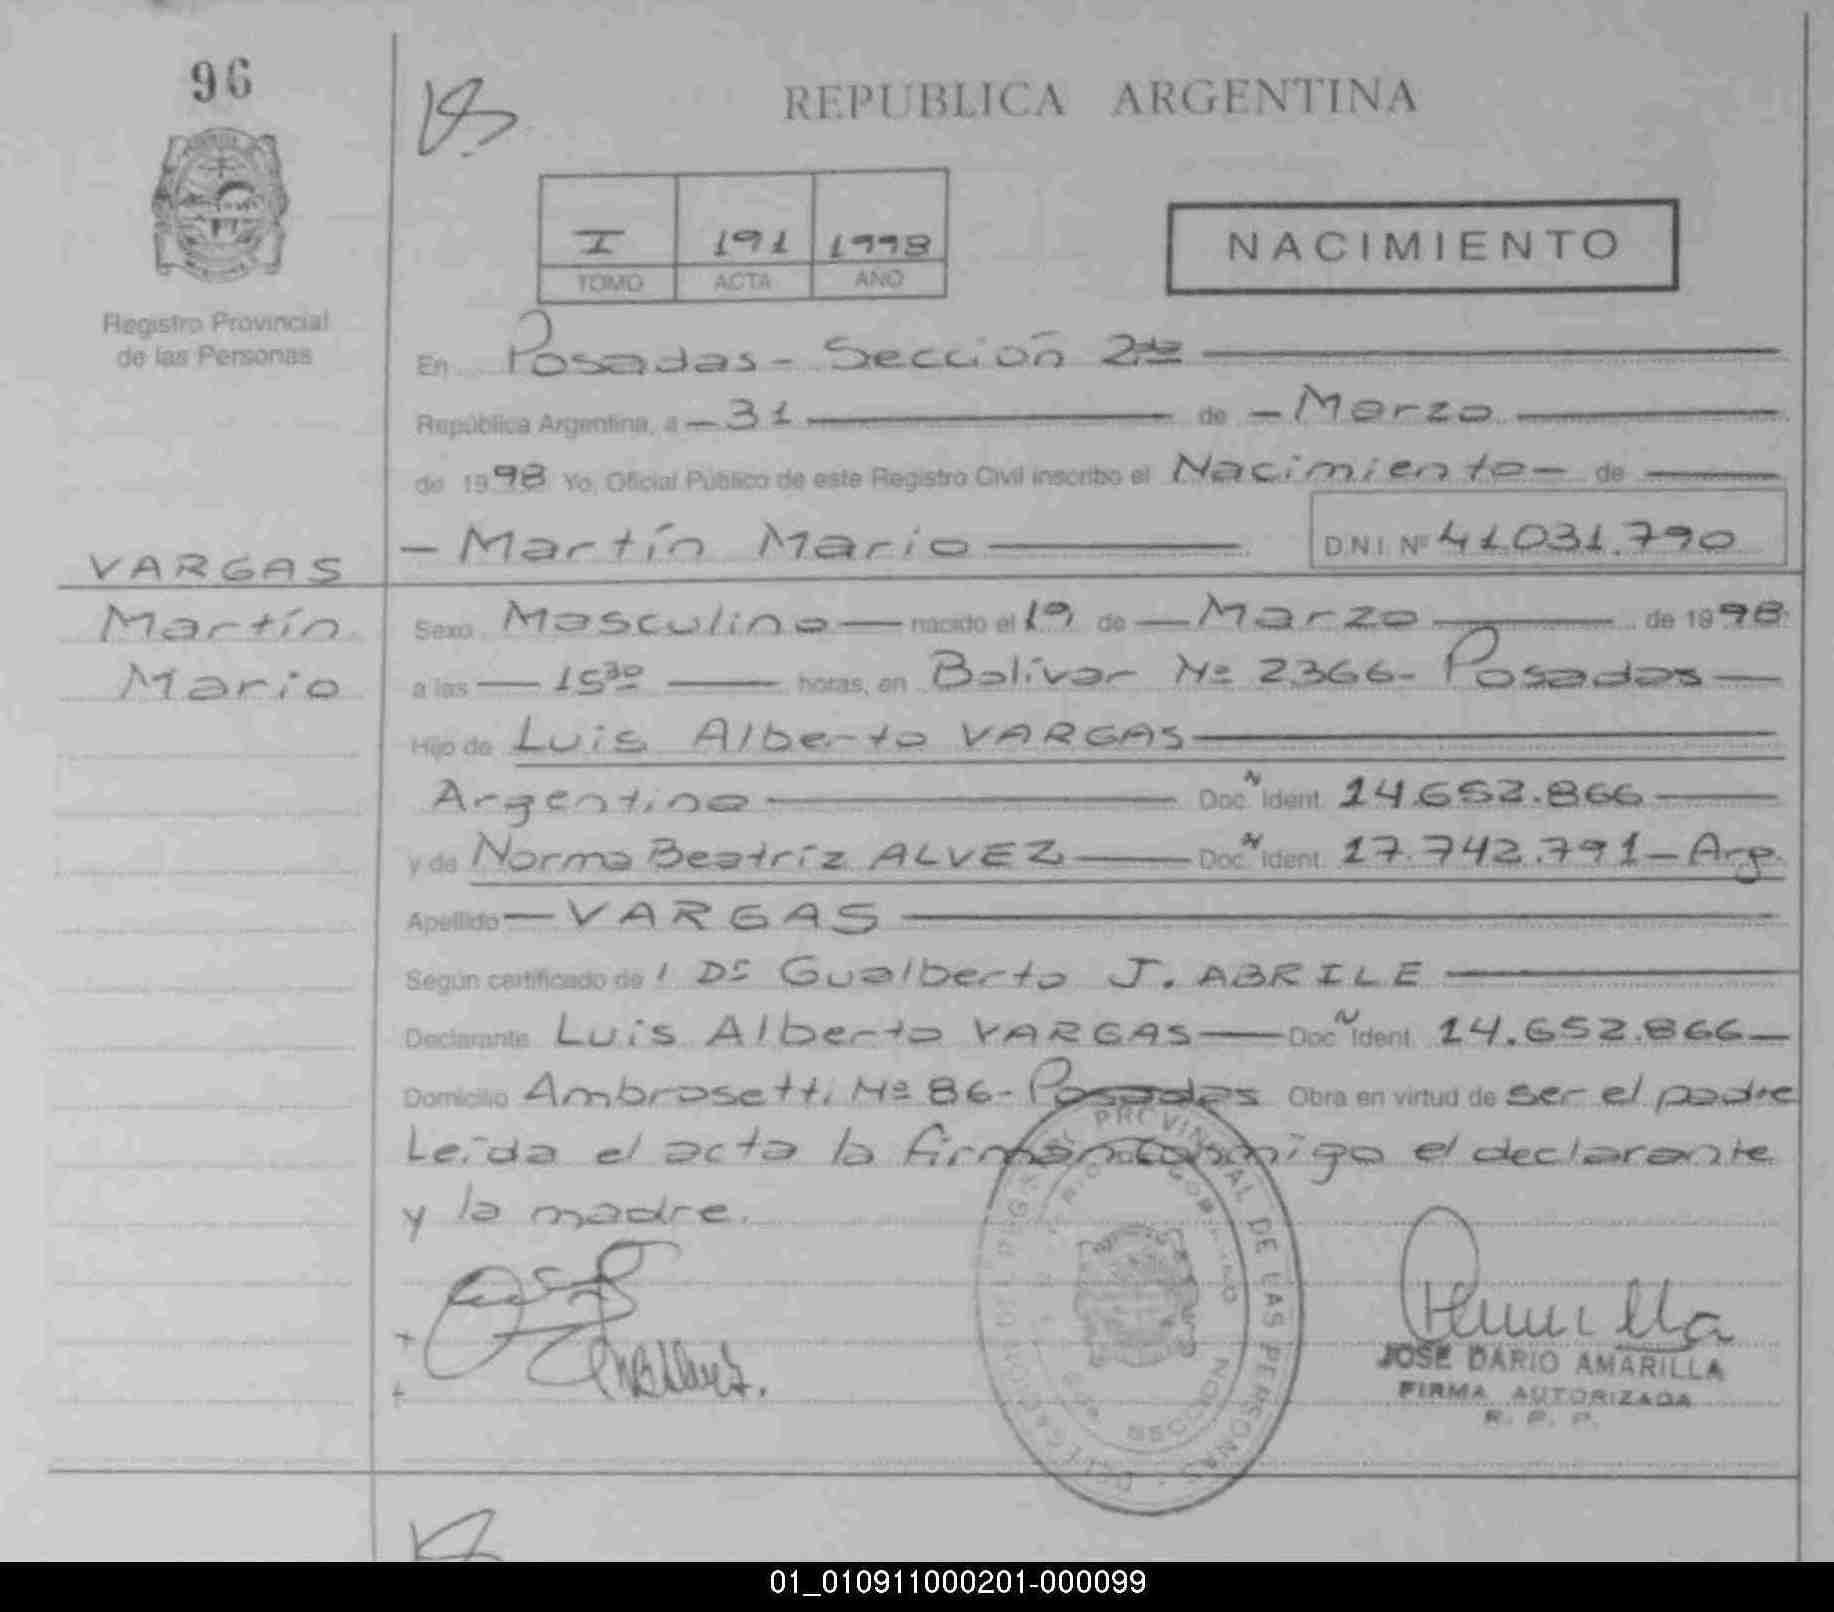 96
REPUBLICA ARGENTINA
I 191 1998
TOMO ACTA AÑO
NACIMIENTO
Registro Provincial
de las Personas
En Posadas - Sección 2da
República Argentina, a - 31 de - Marzo
de 1998 Yo, Oficial Público de este Registro Civil inscribo el Nacimiento - de
- Martín Mario D.N.I. Nº 41.031.790
VARGAS
Martín
Mario
Sexo Masculino nacido el 19 de Marzo de 1998
a las 15 30 horas, en Bolívar Nº 2366 - Posadas
Hijo de Luis Alberto VARGAS
Argentino Doc. N Ident. 14.652.866
y de Norma Beatríz ALVEZ Doc. N Ident. 17.742.791 - Arg.
Apellido VARGAS
Según certificado de Dr Gualberto J. ABRILE
Declarante Luis Alberto VARGAS Doc. N Ident. 14.652.866
Domicilio Ambrosetti Nº 86 - Posadas Obra en virtud de ser el padre
Leída el acta la firman conmigo el declarante
y la madre.
PROVINCIAL DE LAS PERSONAS
SECCION
JOSE DARIO AMARILLA
FIRMA AUTORIZADA
R. P. P.
01_010911000201-000099